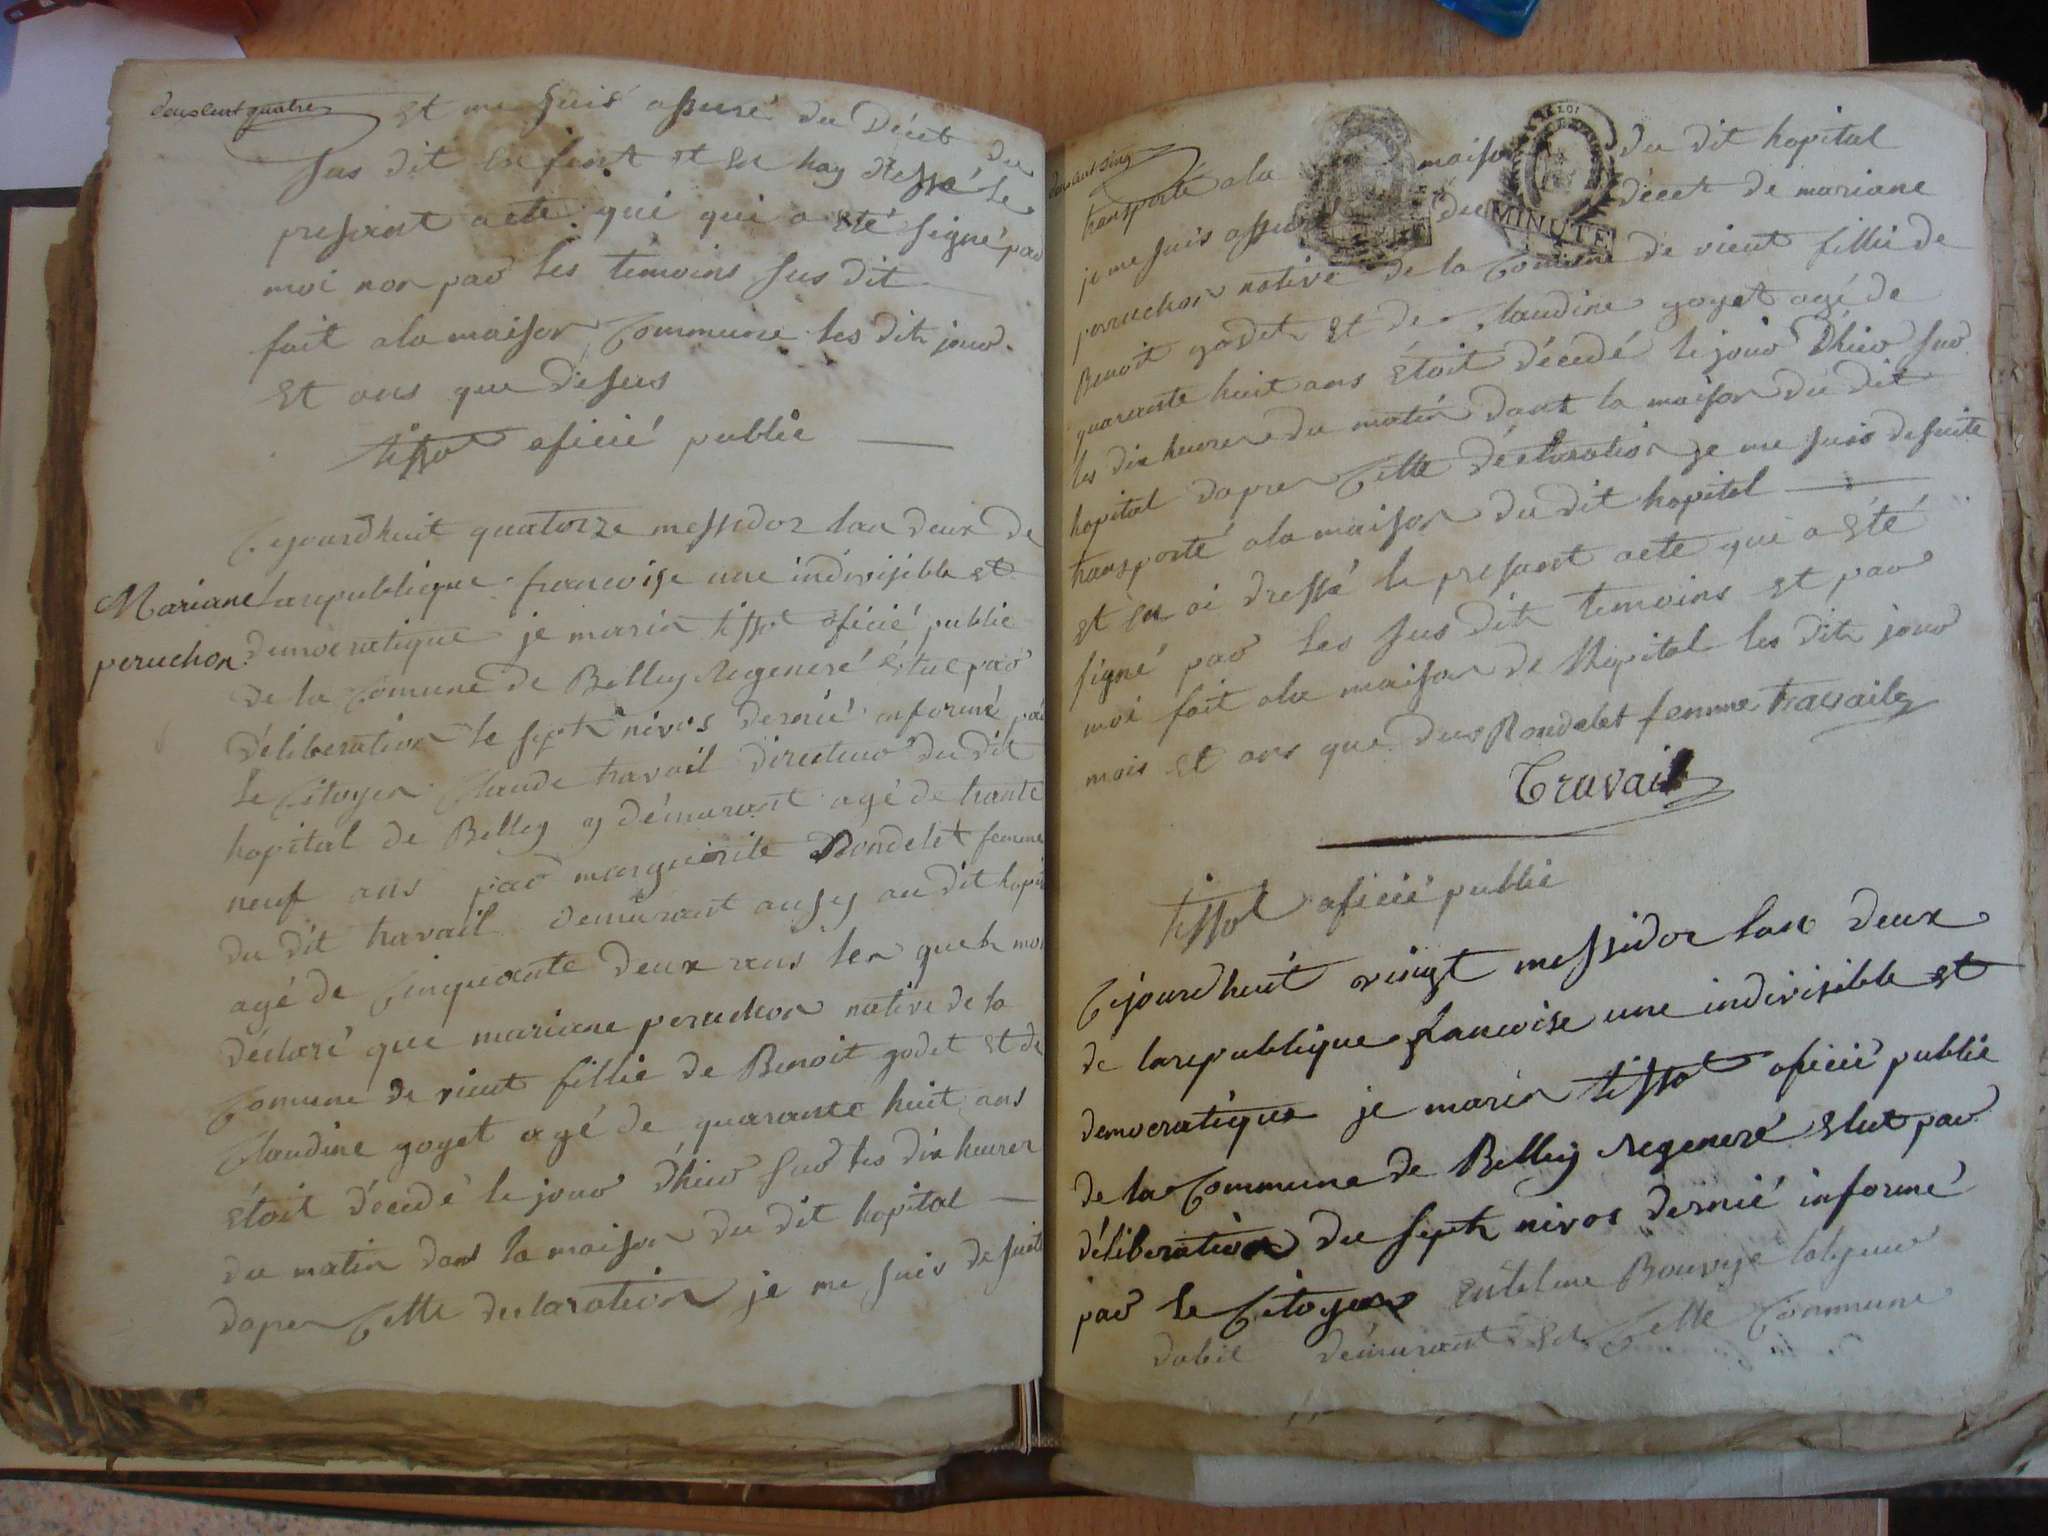 deux cent quatre
Et me suis assuré du Décet du
sus dit Enfant et En hay dressé Le
presant acte qui qui a Eté signé par
moi non par les temoins sus dit
fait a la maison Commune les dit jour
Et ans que desus
tissot oficié public
Cejourdhuit quatorze messidor lan deux de
Mariane
peruchon
la republique francoise une indivisible et
democratique je marin tissot oficié public
de la Comune de Belley Regeneré Elue par
déliberation le sept nivos dernié informé par
le Citoyen Claude travail directeur du dit
hopital de Belley y démurant agé de trante
neuf ans par marguerite Rondelet femme
du dit travail demurant ausy au dit hopi
agé de Cinquante deux ans les quels mon
déclaré que mariane peruchon native de la
Comune de vieut fillie de Benoit godet et de
Claudine goyet agé de quarante huit ans
étoit décedé le jour d'hier sur les dix heures
du matin dans la maison du dit hopital
dapres Cette declaration je me suis de suite
deux cent sinq
transporté a la maison du dit hopital
MINUTE
je me suis assuré du décet de mariane
perruchon native de la Comune de vieut fillie de
Benoit godet Et de Claudine goyet agé de
quarante huit ans Etoit décedé le jour d'hier sur
les dix heures du matin dans la maison du dit
hopital dapres Cette déclaration je me suis desuite
transporté a la maison du dit hopital
et En ai dressé le presant acte qui a Eté
signé par les sus dit temoins et par
moi fait a la maison de l'hopital les dit jour
mois et ans que desus Rondelet femme travaile
Travail
tissot oficié public
Cejourdhuit vingt messidor lan deux
de la republique francoise une indivisible et
democratique je marin tissot oficié public
de la Commune de Belley Regeneré Elut par
déliberation du sept nivos dernié informé
par le Citoyen Entelme Bouvye talyeur
dabit démurant En Cette Commune